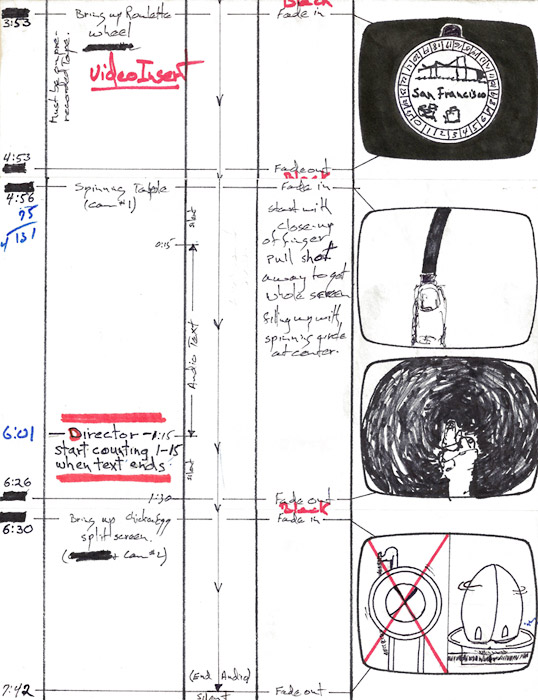 Black
3:53
Bring up Roulette
wheel
Video Insert
Must be on pre-
recorded Tape.
Fade in
San Francisco
4:53
Fade out
Black
Fade in
4:56
75
131
Spinning Table
(cam #1)
Silent
0:15
start with
close-up
of finger
pull shot
away to get
whole screen
filling up with
spinning circle
at center.
Audio Text
6:01
Director - 1:15
start counting 1-15
when text ends
Silent
6:26
1:30
Fade out
Black
6:30
Bring up chicken/egg
split screen.
+ cam #2)
Fade in
7:42
(End Audio)
Silent
Fade out